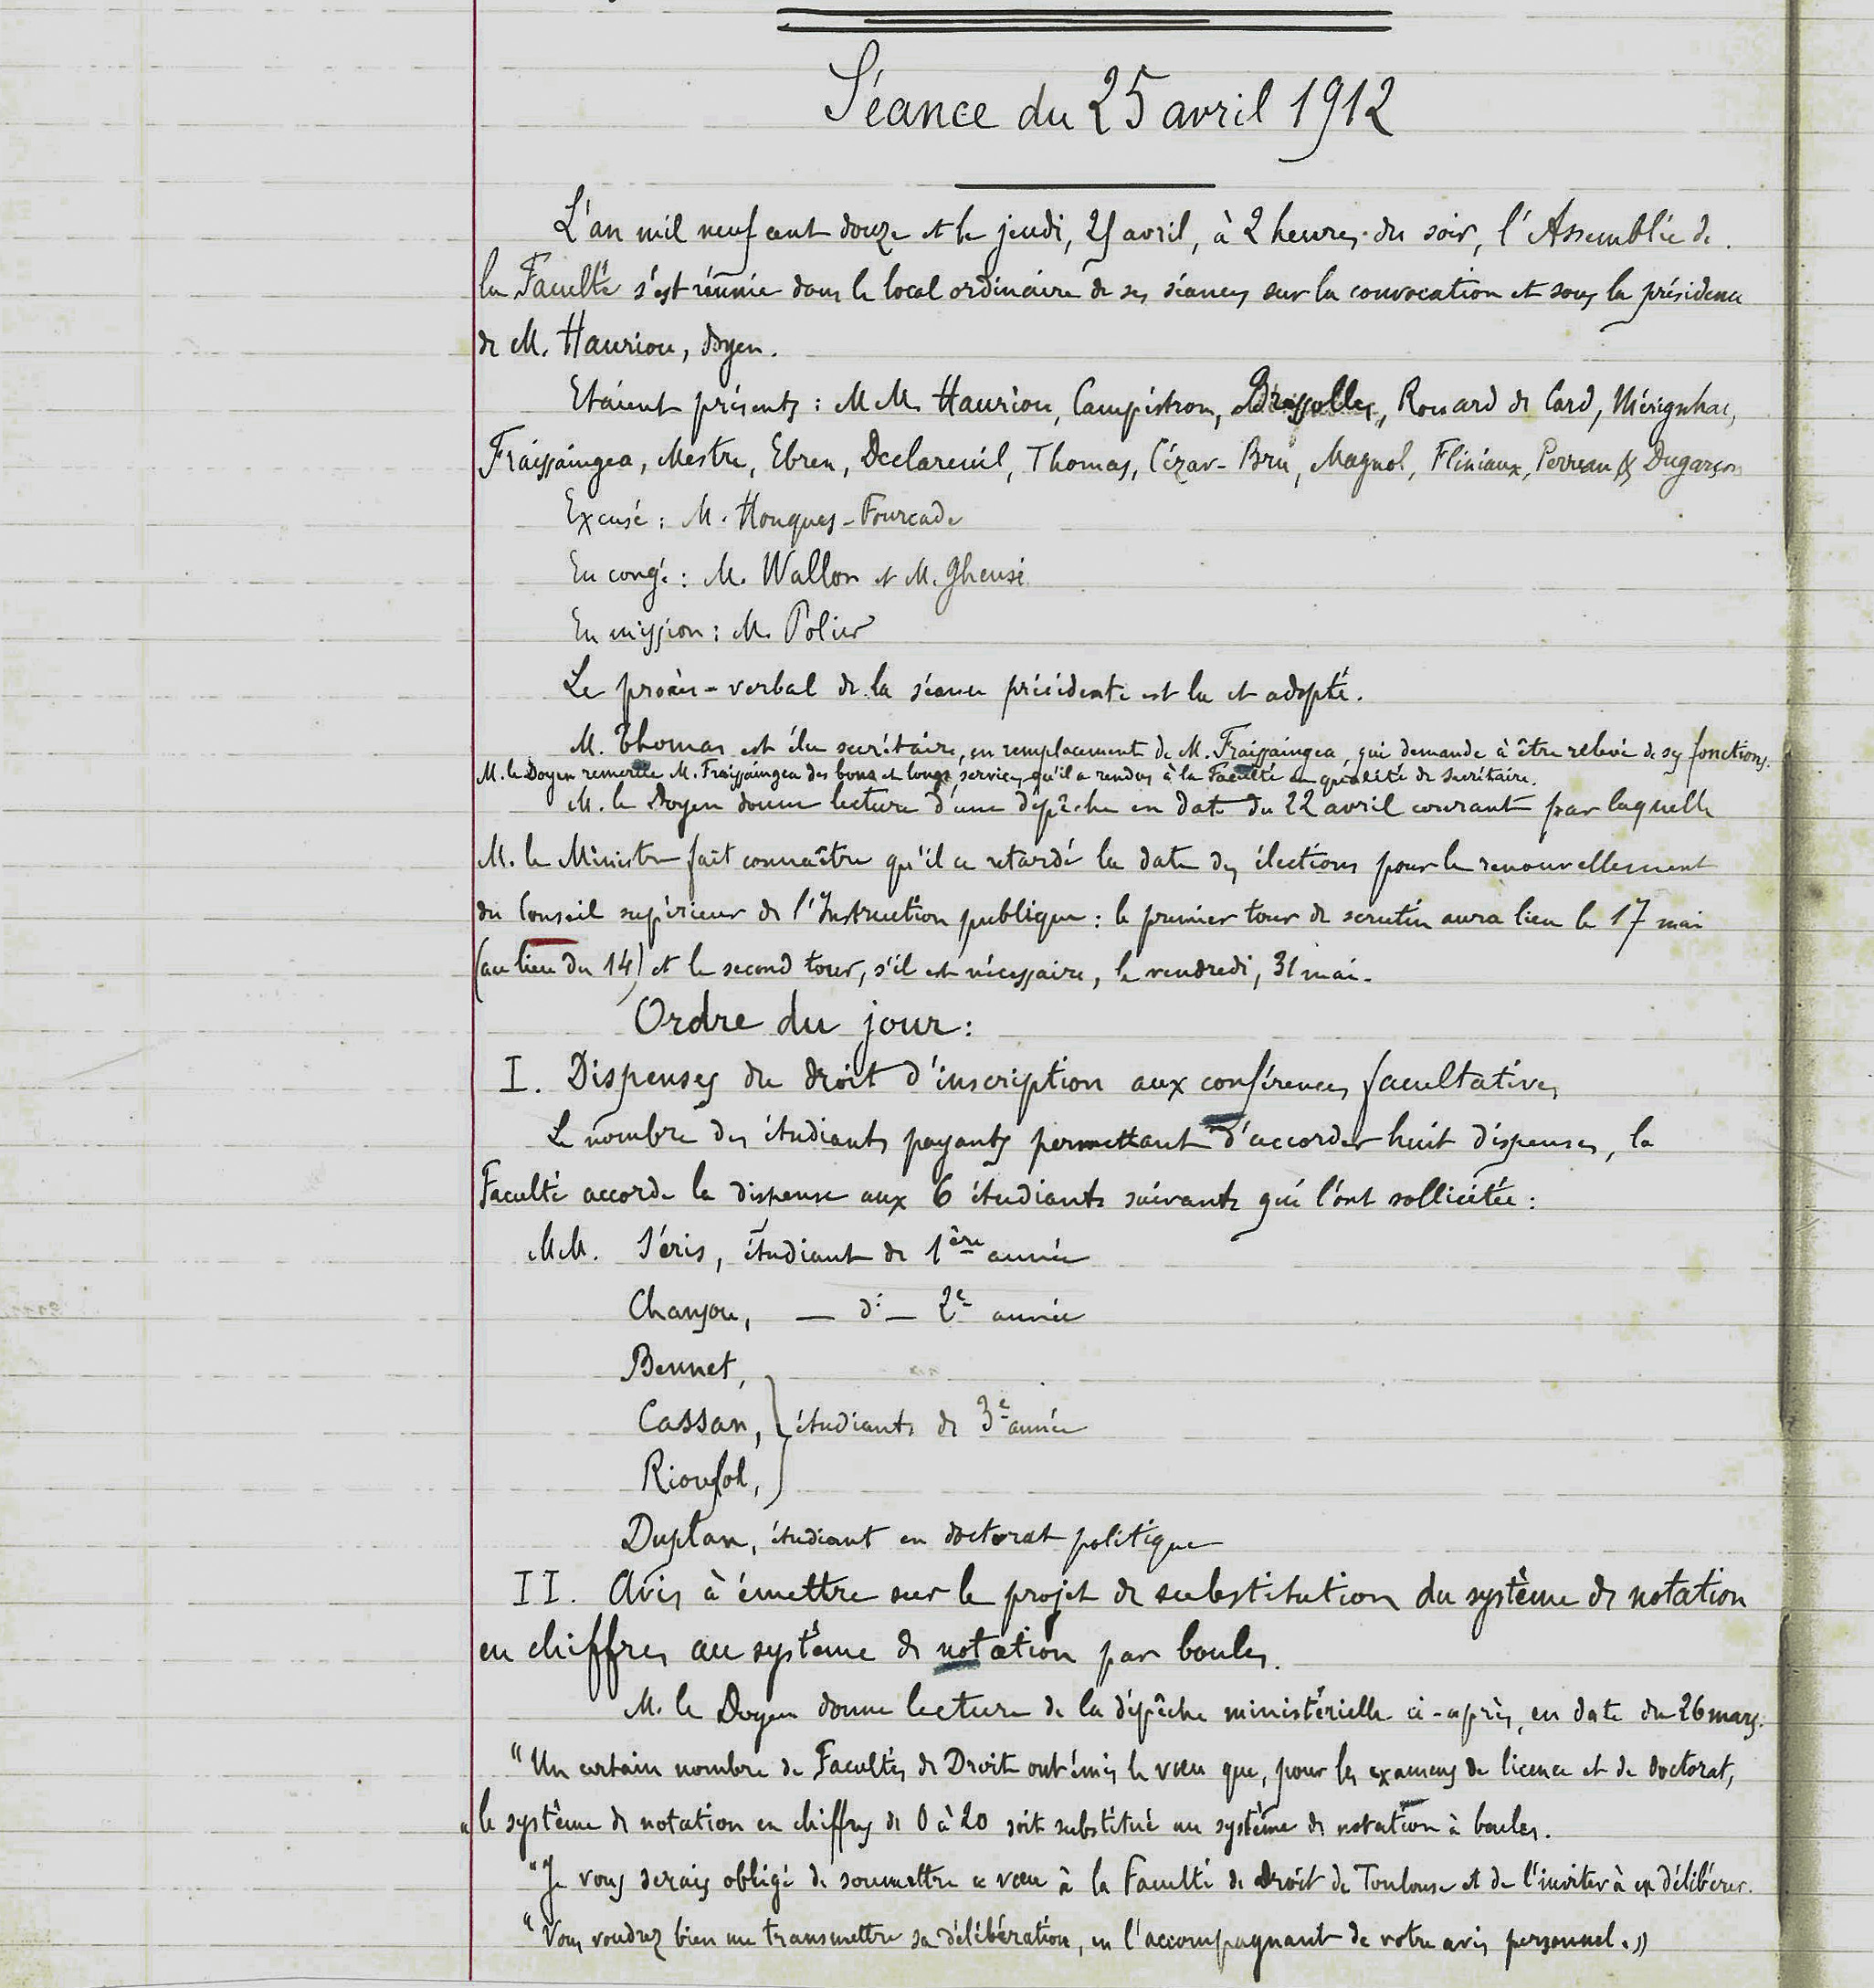 Séance du 25 avril 1912
L'an mil neuf cent douze et le jeudi, 25 avril, à 2 heures du soir, l'Assemblée de
la Faculté s'est réunie dans le local ordinaire de ses séances sur la convocation et sous la présidence
de M. Hauriou, doyen.
Etaient présents : MM. Hauriou, Campistron, Bressolles, Rouard de Card, Mérignhac,
Fraissaingea, Mestre, Ebren, Declareuil, Thomas, Cézar-Bru, Magnol, Fliniaux, Perreau & Dugarçon
Excusé : M. Houques-Fourcade
En congé : M. Wallon et M. Gheusi
En mission : M. Polier
Le procès-verbal de la séance précédente est lu et adopté.
M. Thomas est élu secrétaire, en remplacement de M. Fraissaingea, qui demande à être relevé de ses fonctions.
M. le Doyen remercie M. Fraissaingea des bons et longs services qu'il a rendus à la Faculté en qualité de secrétaire.
M. le Doyen donne lecture d'une dépêche en date du 22 avril courant par laquelle
M. le Ministre fait connaître qu'il a retardé la date des élections pour le renouvellement
du Conseil supérieur de l'Instruction publique : le premier tour de scrutin aura lieu le 17 mai
(au lieu du 14) et le second tour, s'il est nécessaire, le vendredi, 31 mai.
Ordre du jour :
I. Dispenses du droit d'inscription aux conférences facultatives
Le nombre des étudiants payants permettant d'accorder huit dispenses, la
Faculté accorde la dispense aux 6 étudiants suivants qui l'ont sollicitée :
MM. Séris, étudiant de 1ère année
Chanjou, — d° — 2e année
Bennet,
Cassan, } étudiants de 3e année
Rioufol,
Duplan, étudiant en doctorat politique
II. Avis à émettre sur le projet de substitution du système de notation
en chiffres au système de notation par boules.
M. le Doyen donne lecture de la dépêche ministérielle ci-après, en date du 26 mars.
"Un certain nombre de Facultés de Droit ont émis le vœu que, pour les examens de licence et de doctorat,
"le système de notation en chiffres de 0 à 20 soit substitué au système de notation à boules.
"Je vous serais obligé de soumettre ce vœu à la Faculté de Droit de Toulouse et de l'inviter à en délibérer.
"Vous voudrez bien me transmettre sa délibération, en l'accompagnant de votre avis personnel. »